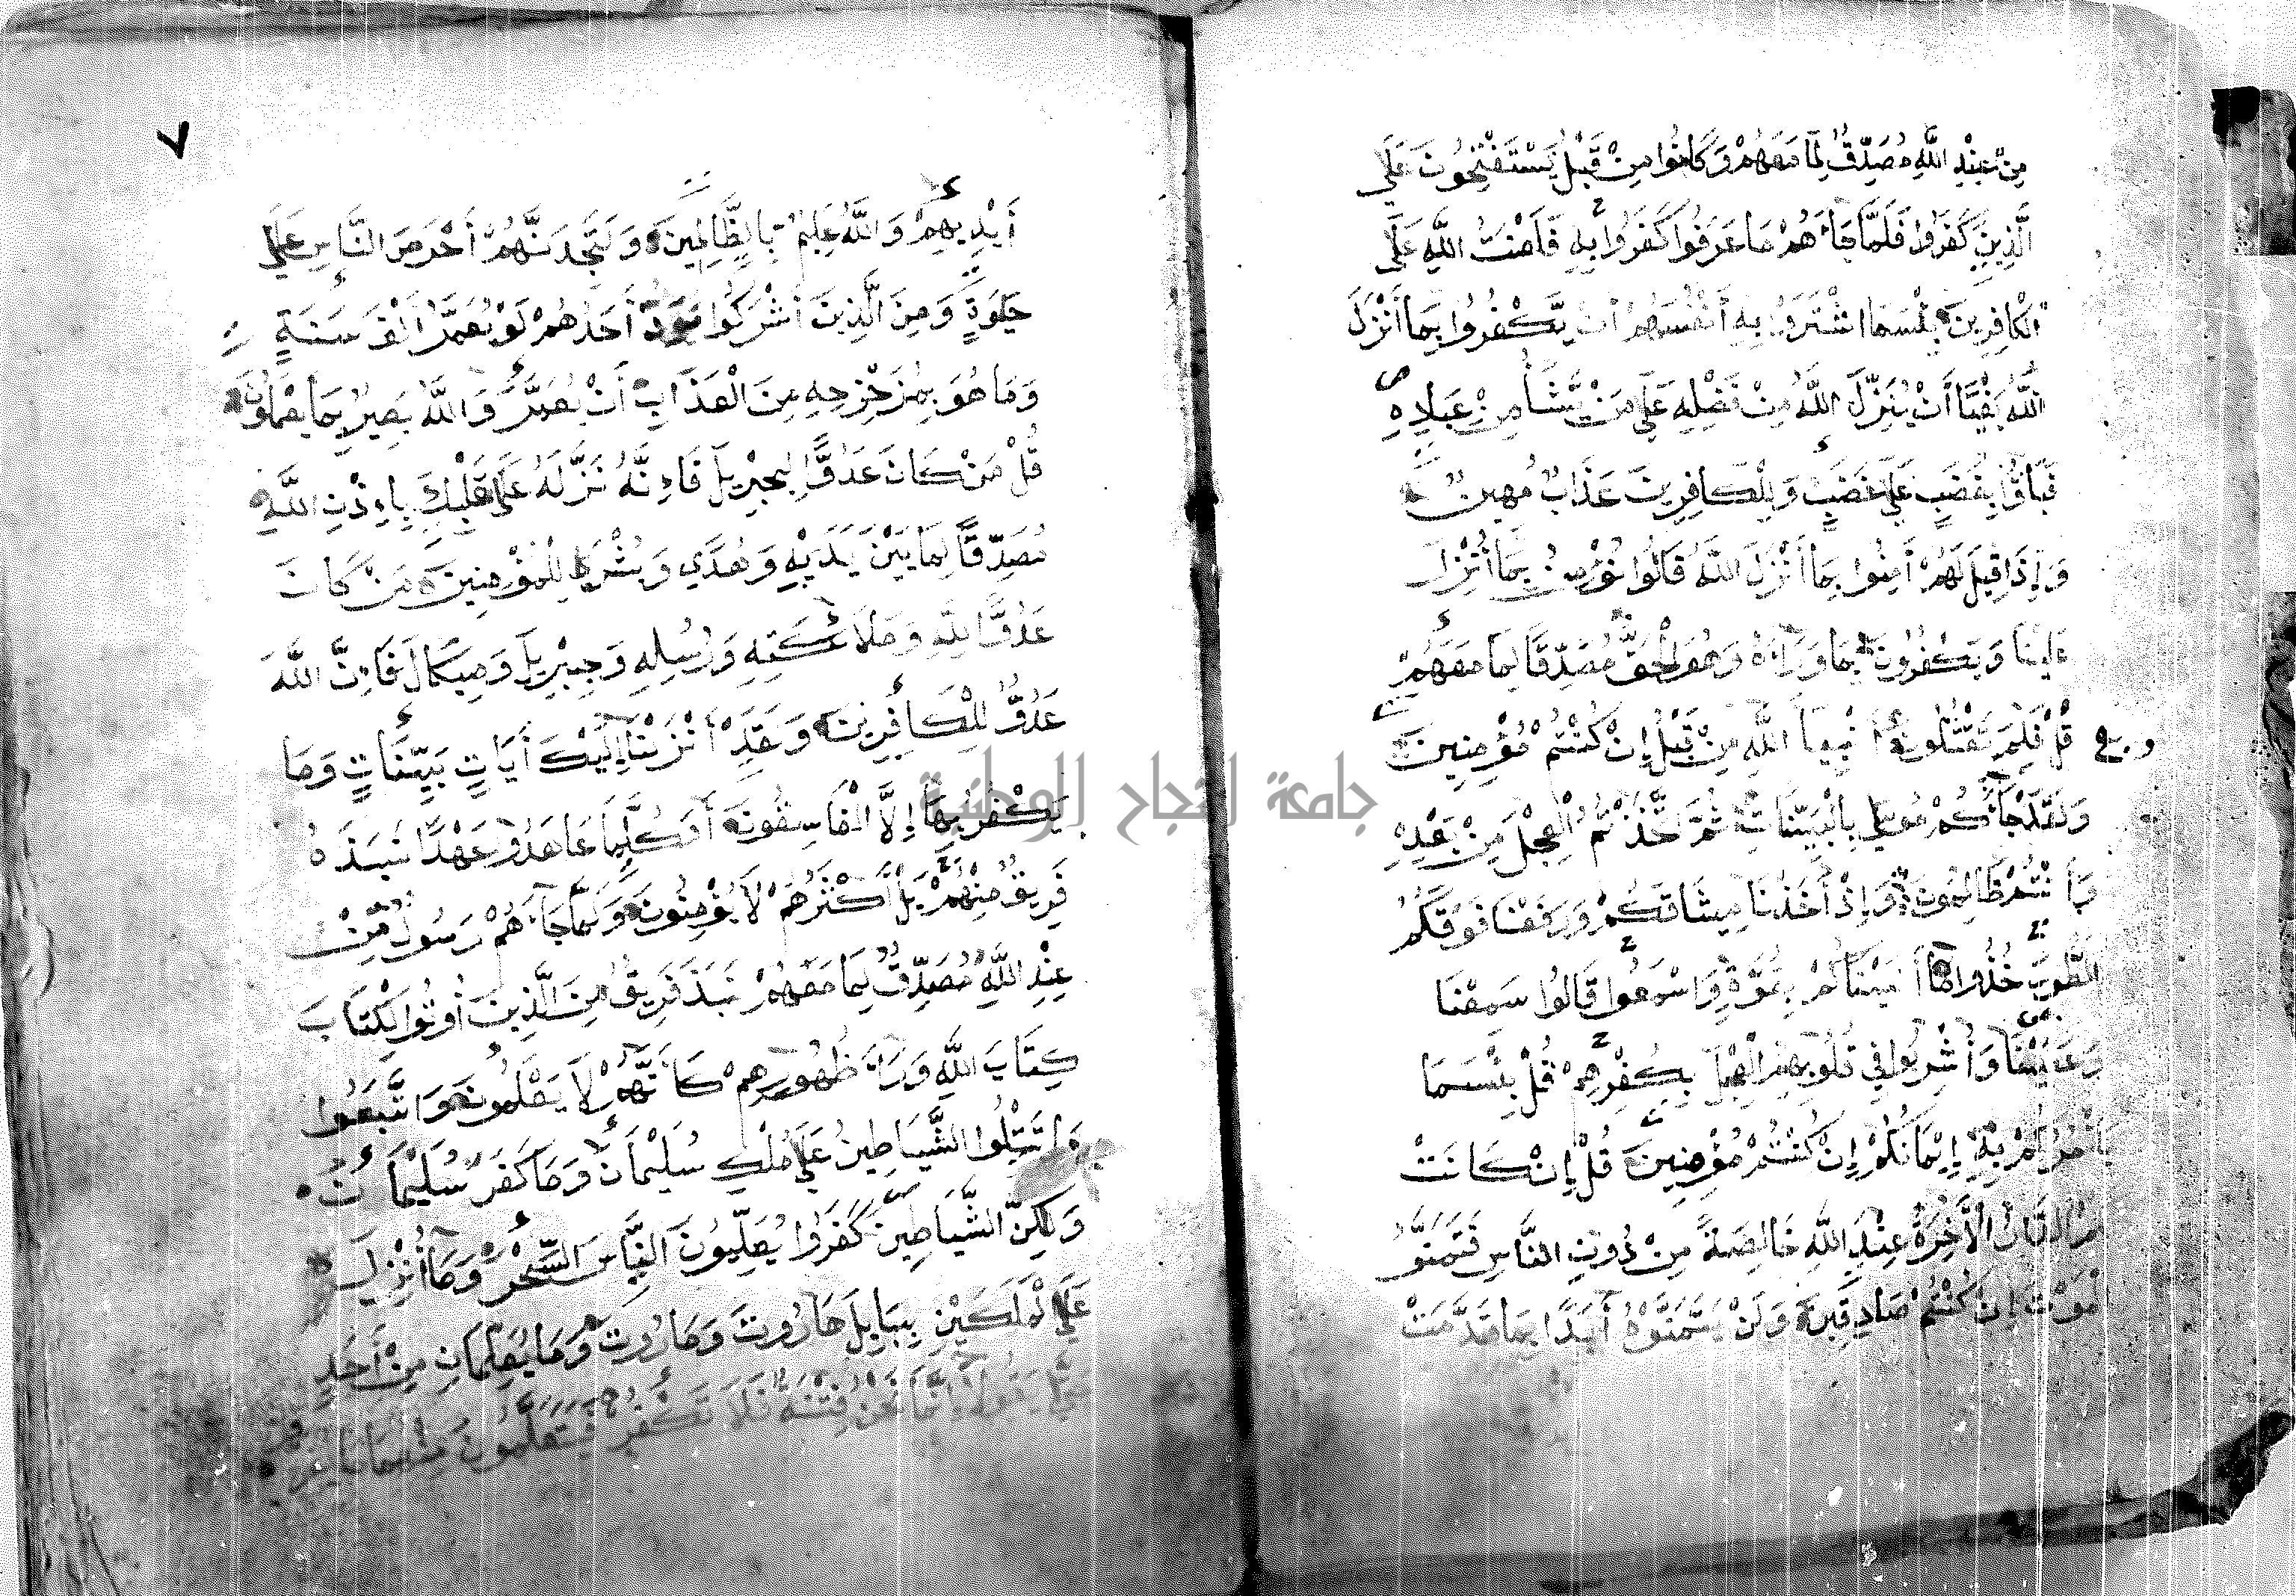 مِنْ عِنْدِ اللَّهِ مُصَدِّقٌ لِمَا مَعَهُمْ وَكَانُوا مِنْ قَبْلُ يَسْتَفْتِحُونَ عَلَى
الَّذِينَ كَفَرُوا فَلَمَّا جَاءَهُمْ مَا عَرَفُوا كَفَرُوا بِهِ فَلَعْنَتُ اللَّهِ عَلَى
الْكَافِرِينَ بِئْسَمَا اشْتَرَوْا بِهِ أَنْفُسَهُمْ أَنْ يَكْفُرُوا بِمَا أَنْزَلَ
اللَّهُ بَغْيًا أَنْ يُنَزِّلَ اللَّهُ مِنْ فَضْلِهِ عَلَى مَنْ يَّشَاءُ مِنْ عِبَادِهِ
فَبَاءُوا بِغَضَبٍ عَلَى غَضَبٍ وَلِلْكَافِرِينَ عَذَابٌ مُهِينٌ
وَإِذَا قِيلَ لَهُمْ أَمِنُوا بِمَا أَنْزَلَ اللَّهُ قَالُوا نُؤْمِنُ بِمَا أُنْزِلَ
عَلَيْنَا وَيَكْفُرُونَ بِمَا وَرَاءَهُ وَهُوَ الْحَقُّ مُصَدِّقًا لِمَا مَعَهُمْ
قُلْ فَلِمَ تَقْتُلُونَ أَنْبِيَاءَ اللَّهِ مِنْ قَبْلُ إِنْ كُنْتُمْ مُؤْمِنِينَ
وَلَقَدْ جَاءَكُمْ مُوسَى بِالْبَيِّنَاتِ ثُمَّ اتَّخَذْتُمُ الْعِجْلَ مِنْ بَعْدِهِ
وَأَنْتُمْ ظَالِمُونَ وَإِذْ أَخَذْنَا مِيثَاقَكُمْ وَرَفَعْنَا فَوْقَكُمُ
الطُّورَ خُذُوا مَا أَتَيْنَاكُمْ بِقُوَّةٍ وَاسْمَعُوا قَالُوا سَمِعْنَا
وَعَصَيْنَا وَأُشْرِبُوا فِي قُلُوبِهِمُ الْعِجْلَ بِكُفْرِهِمْ قُلْ بِئْسَمَا
يَأْمُرُكُمْ بِهِ إِيمَانُكُمْ إِنْ كُنْتُمْ مُؤْمِنِينَ قُلْ إِنْ كَانَتْ
لَكُمُ الدَّارُ الْأَخِرَةُ عِنْدَ اللَّهِ خَالِصَةً مِنْ دُونِ النَّاسِ فَتَمَنَّوُ
الْمَوْتَ إِنْ كُنْتُمْ صَادِقِينَ وَلَنْ يَتَمَنَّوْهُ أَبَدًا بِمَا قَدَّمَتْ
٧
أَيْدِيهِمْ وَاللَّهُ عَلِيمٌ بِالظَّالِمِينَ وَلَتَجِدَنَّهُمْ أَحْرَصَ النَّاسِ عَلَى
حَيَوةٍ وَمِنَ الَّذِينَ أَشْرَكُوا يَوَدُّ أَحَدُهُمْ لَوْ يُعَمَّرُ أَلْفَ سَنَةٍ
وَمَا هُوَ بِمُزَحْزِحِهِ مِنَ الْعَذَابِ أَنْ يُعَمَّرَ وَاللَّهُ بَصِيرٌ بِمَا يَعْمَلُونَ
قُلْ مَنْ كَانَ عَدُوًّا لِجِبْرِيلَ فَإِنَّهُ نَزَّلَهُ عَلَى قَلْبِكَ بِإِذْنِ اللَّهِ
مُصَدِّقًا لِمَا بَيْنَ يَدَيْهِ وَهُدًى وَبُشْرَى لِلْمُؤْمِنِينَ مَنْ كَانَ
عَدُوًّا لِلَّهِ وَمَلَائِكَتِهِ وَرُسُلِهِ وَجِبْرِيلَ وَمِيكَالَ فَإِنَّ اللَّهَ
عَدُوٌّ لِلْكَافِرِينَ وَلَقَدْ أَنْزَلْنَا إِلَيْكَ أَيَاتٍ بَيِّنَاتٍ وَمَا
يَكْفُرُ بِهَا إِلَّا الْفَاسِقُونَ أَوَكُلَّمَا عَاهَدُوا عَهْدًا نَبَذَهُ
فَرِيقٌ مِنْهُمْ بَلْ أَكْثَرُهُمْ لَا يُؤْمِنُونَ وَلَمَّا جَاءَهُمْ رَسُولٌ مِنْ
عِنْدِ اللَّهِ مُصَدِّقٌ لِمَا مَعَهُمْ نَبَذَ فَرِيقٌ مِنَ الَّذِينَ أُوتُوا الْكِتَابَ
كِتَابَ اللَّهِ وَرَاءَ ظُهُورِهِمْ كَأَنَّهُمْ لَا يَعْلَمُونَ وَاتَّبَعُوا
مَا تَتْلُوا الشَّيَاطِينُ عَلَى مُلْكِ سُلَيْمَانَ وَمَا كَفَرَ سُلَيْمَانُ
وَلَكِنَّ الشَّيَاطِينَ كَفَرُوا يُعَلِّمُونَ النَّاسَ السِّحْرَ وَمَا أُنْزِلَ
عَلَى الْمَلَكَيْنِ بِبَابِلَ هَارُوتَ وَمَارُوتَ وَمَا يُعَلِّمَانِ مِنْ أَحَدٍ
حَتَّى يَقُولَا إِنَّمَا نَحْنُ فِتْنَةٌ فَلَا تَكْفُرْ فَيَتَعَلَّمُونَ مِنْهُمَا
جامعة النجاح الوطنية